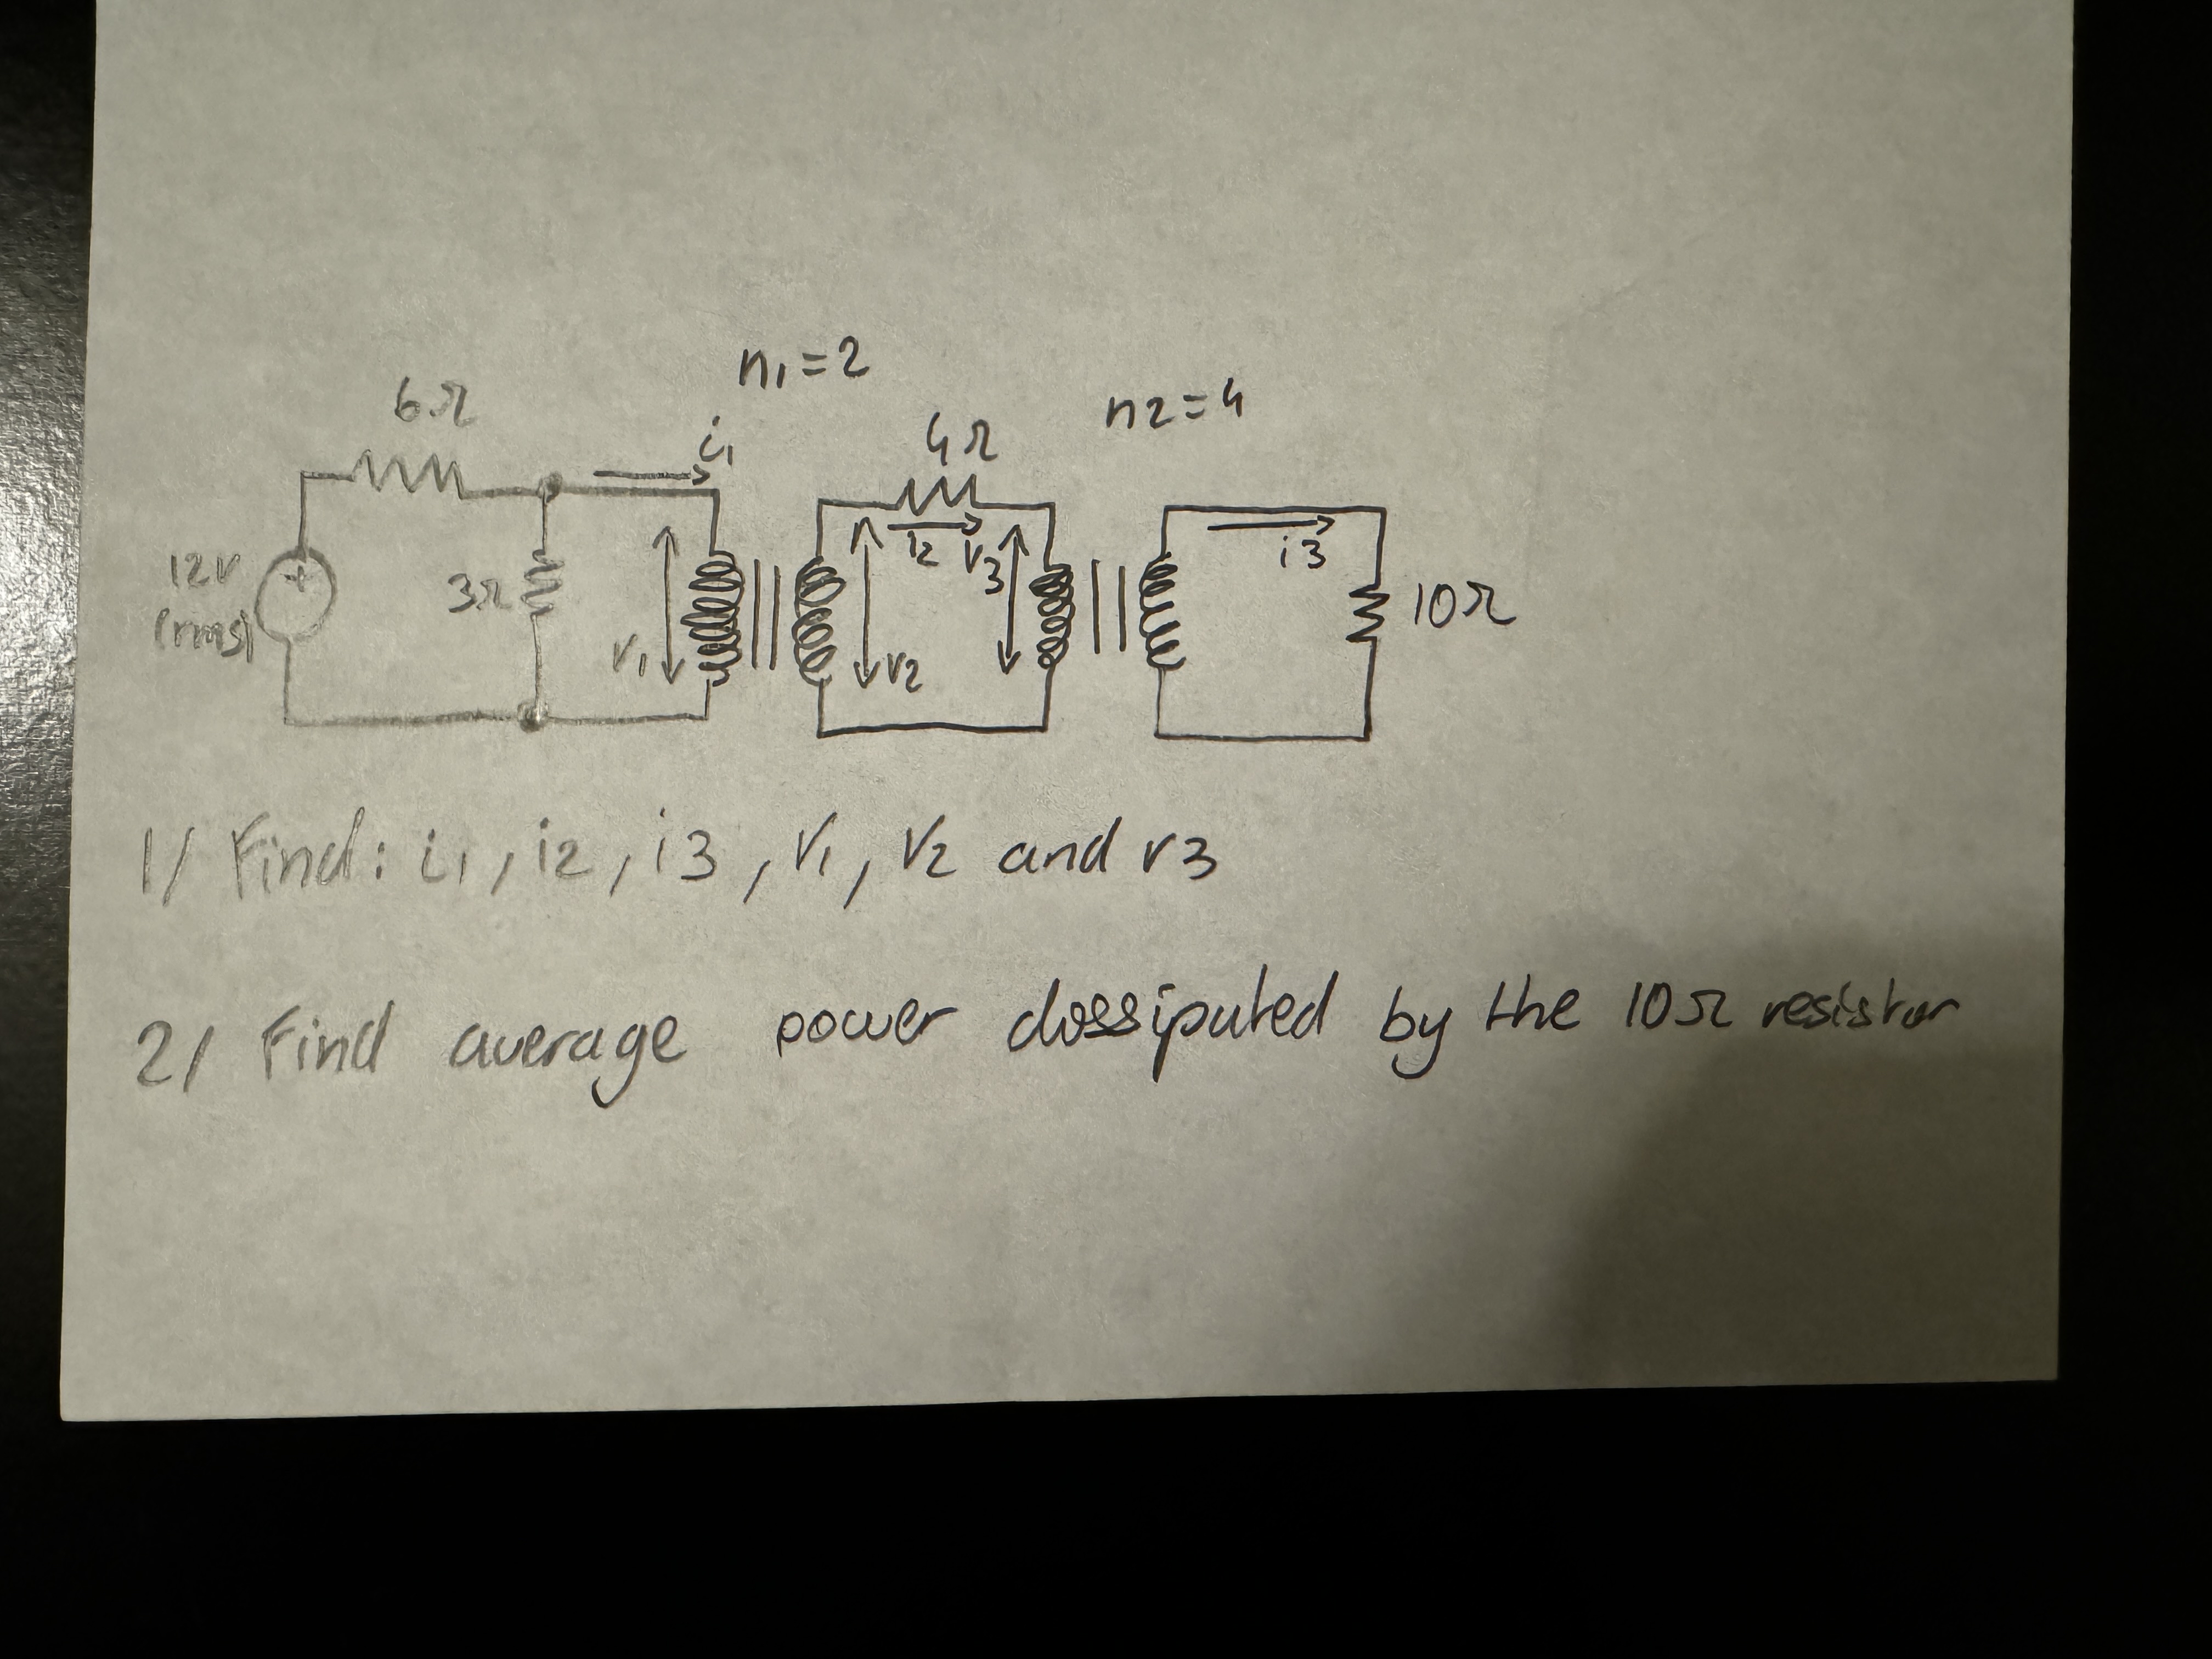 n1=2
6Ω
n2=4
i1
4Ω
12v
(rms)
3Ω
i2
v3
i3
10Ω
v1
v2
1/ Find: i1, i2, i3, V1, V2 and v3
2/ Find average power dossiputed by the 10Ω resistor